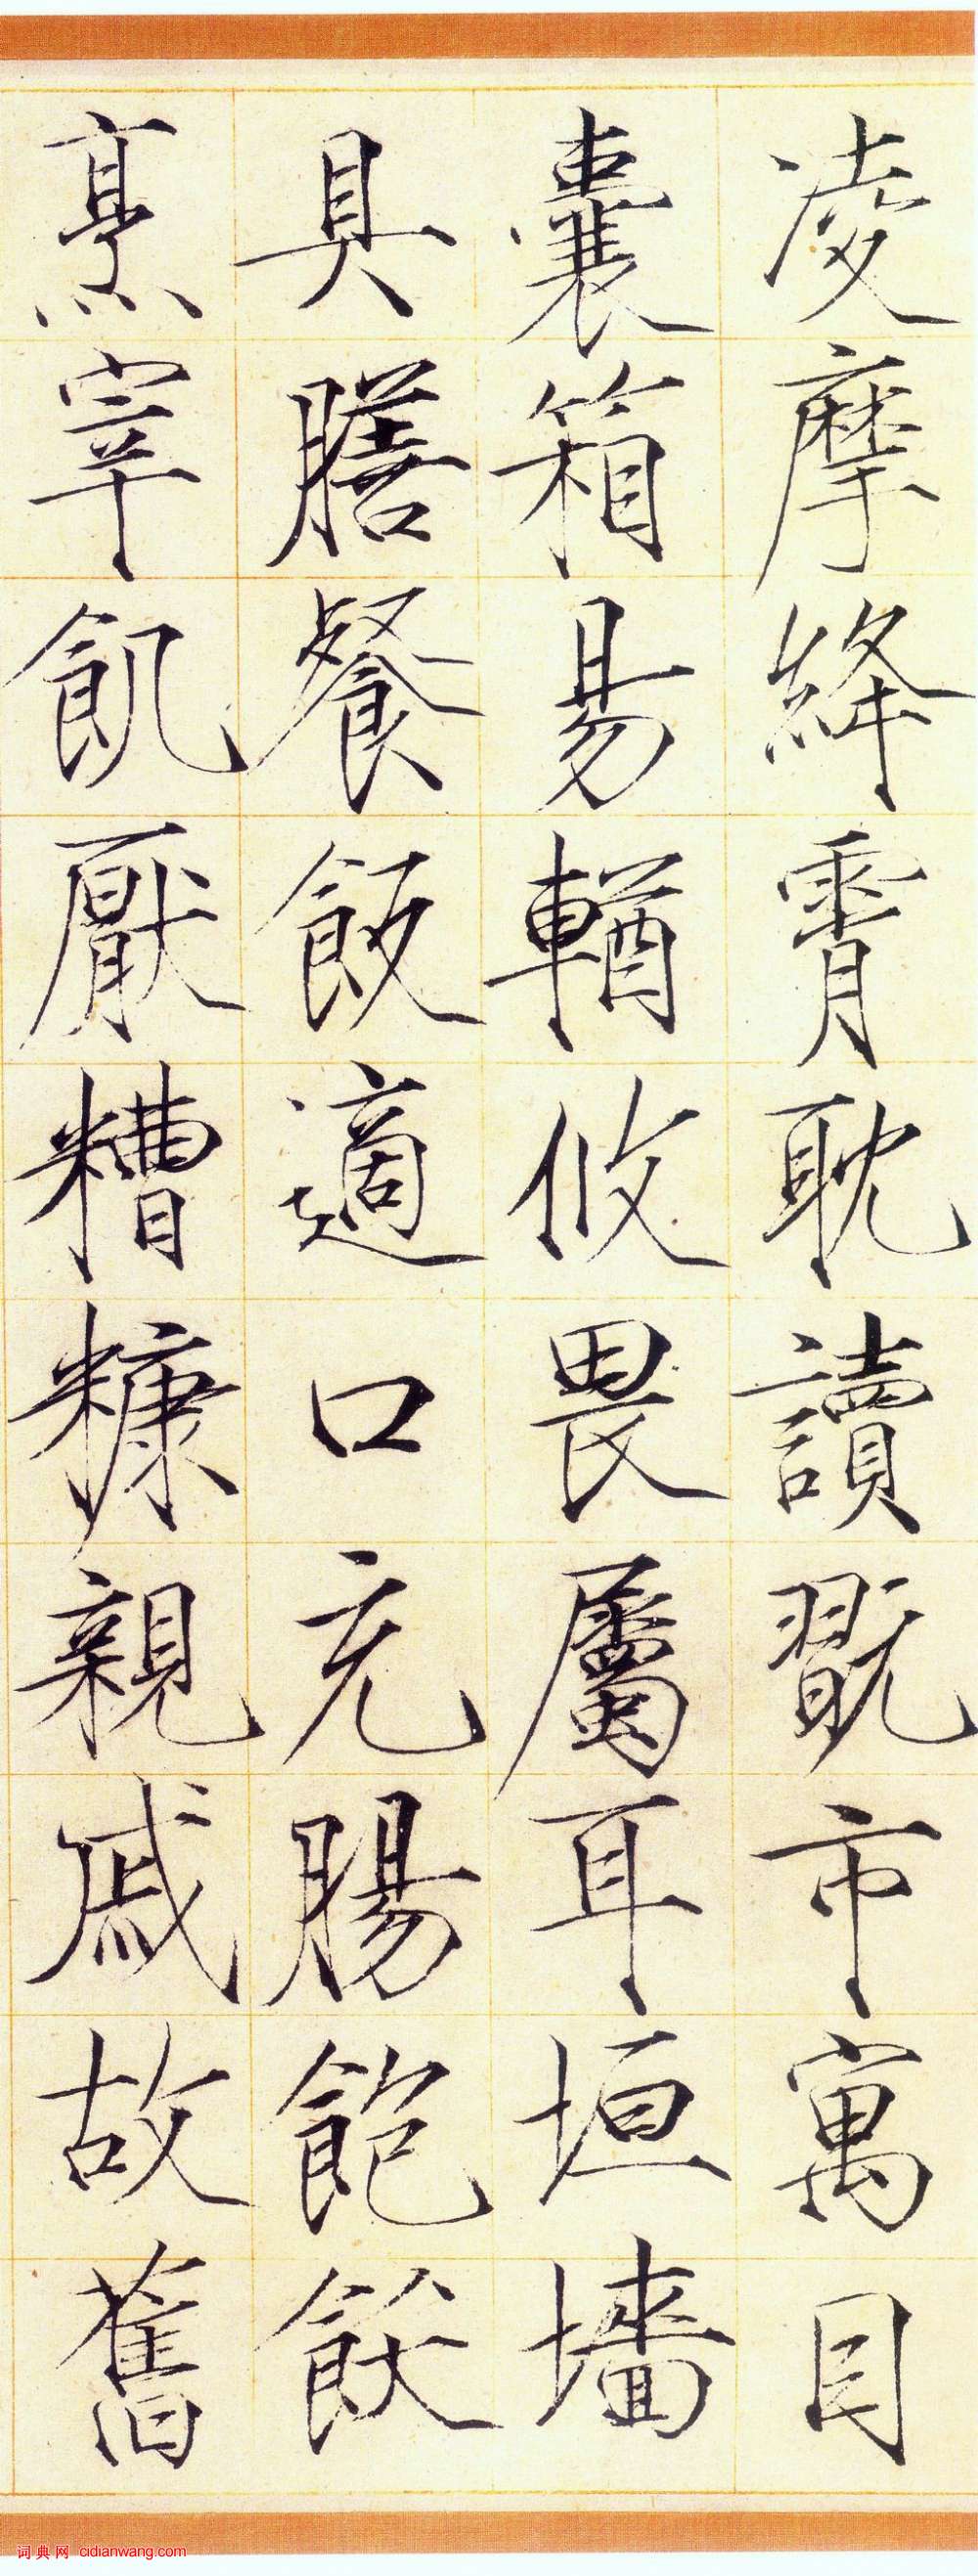 凌摩絳霄耽讀翫市寓目
囊箱易輶攸畏屬耳垣墻
具膳餐飯適口充腸飽飫
烹宰飢厭糟糠親戚故舊
词典网 cidianwang.com